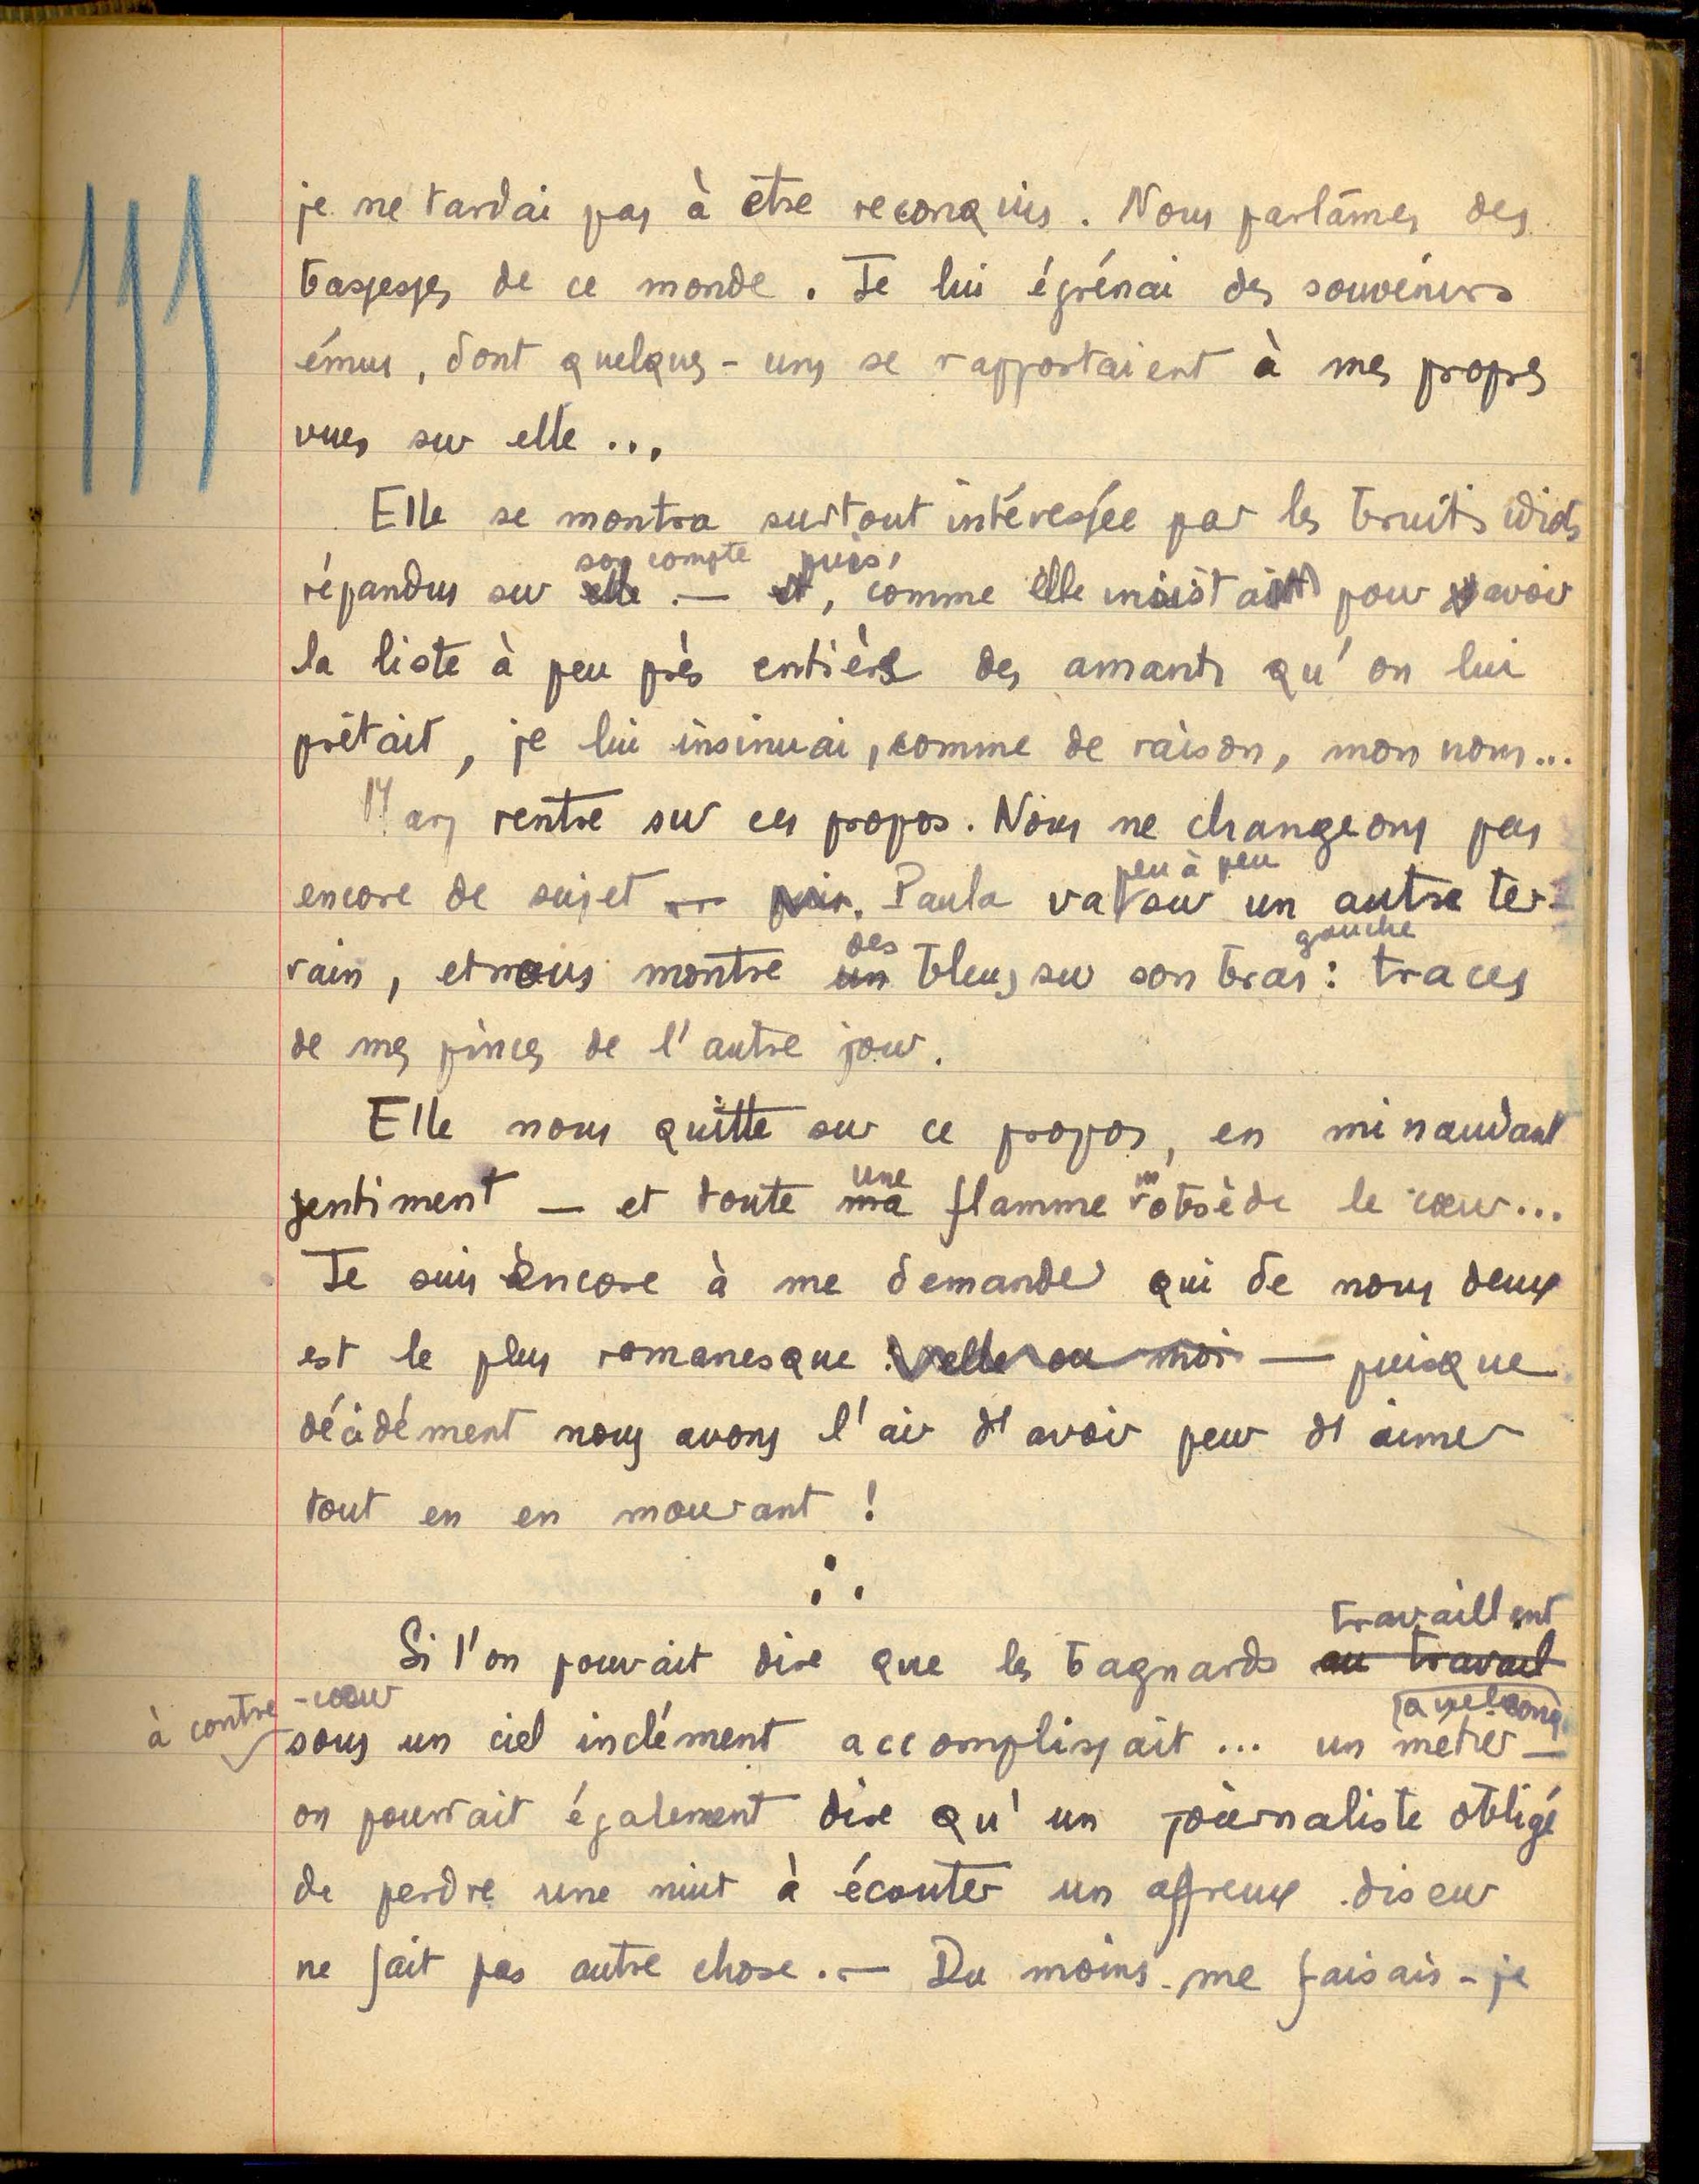 111
je ne tardai pas à être reconquis. Nous parlâmes des
bassesses de ce monde. Je lui égrénai des souvenirs
émus, dont quelques-uns se rapportaient à mes propres
vues sur elle...
Elle se montra surtout intéressée par les bruits
son compte puis,
répandus sur elle. — et, comme elle insistait pour avoir
la liste à peu près entière des amants qu'on lui
prêtait, je lui insinuai, comme de raison, mon nom...
Mary rentre sur ces propos. Nous ne changeons pas
peu à peu
encore de sujet — puis. Paula va sur un autre ter-
des gauche
rain, et nous montre un bleus sur son bras : traces
de mes pinces de l'autre jour.
Elle nous quitte sur ce propos, en minaudant
une m'
gentiment — et toute ma flamme obsède le cœur...
Je suis encore à me demander qui de nous deux
est le plus romanesque : elle ou moi — puisque
décidément nous avons l'air d'avoir peur d'aimer
tout en en mourant !
∴
travaillent
Si l'on pouvait dire que les bagnards au travail
à contre-cœur
sous un ciel inclément accomplissait... un métier —
on pourrait également dire qu'un journaliste obligé
de perdre une nuit à écouter un affreux diseur
ne fait pas autre chose. — Du moins me faisais-je